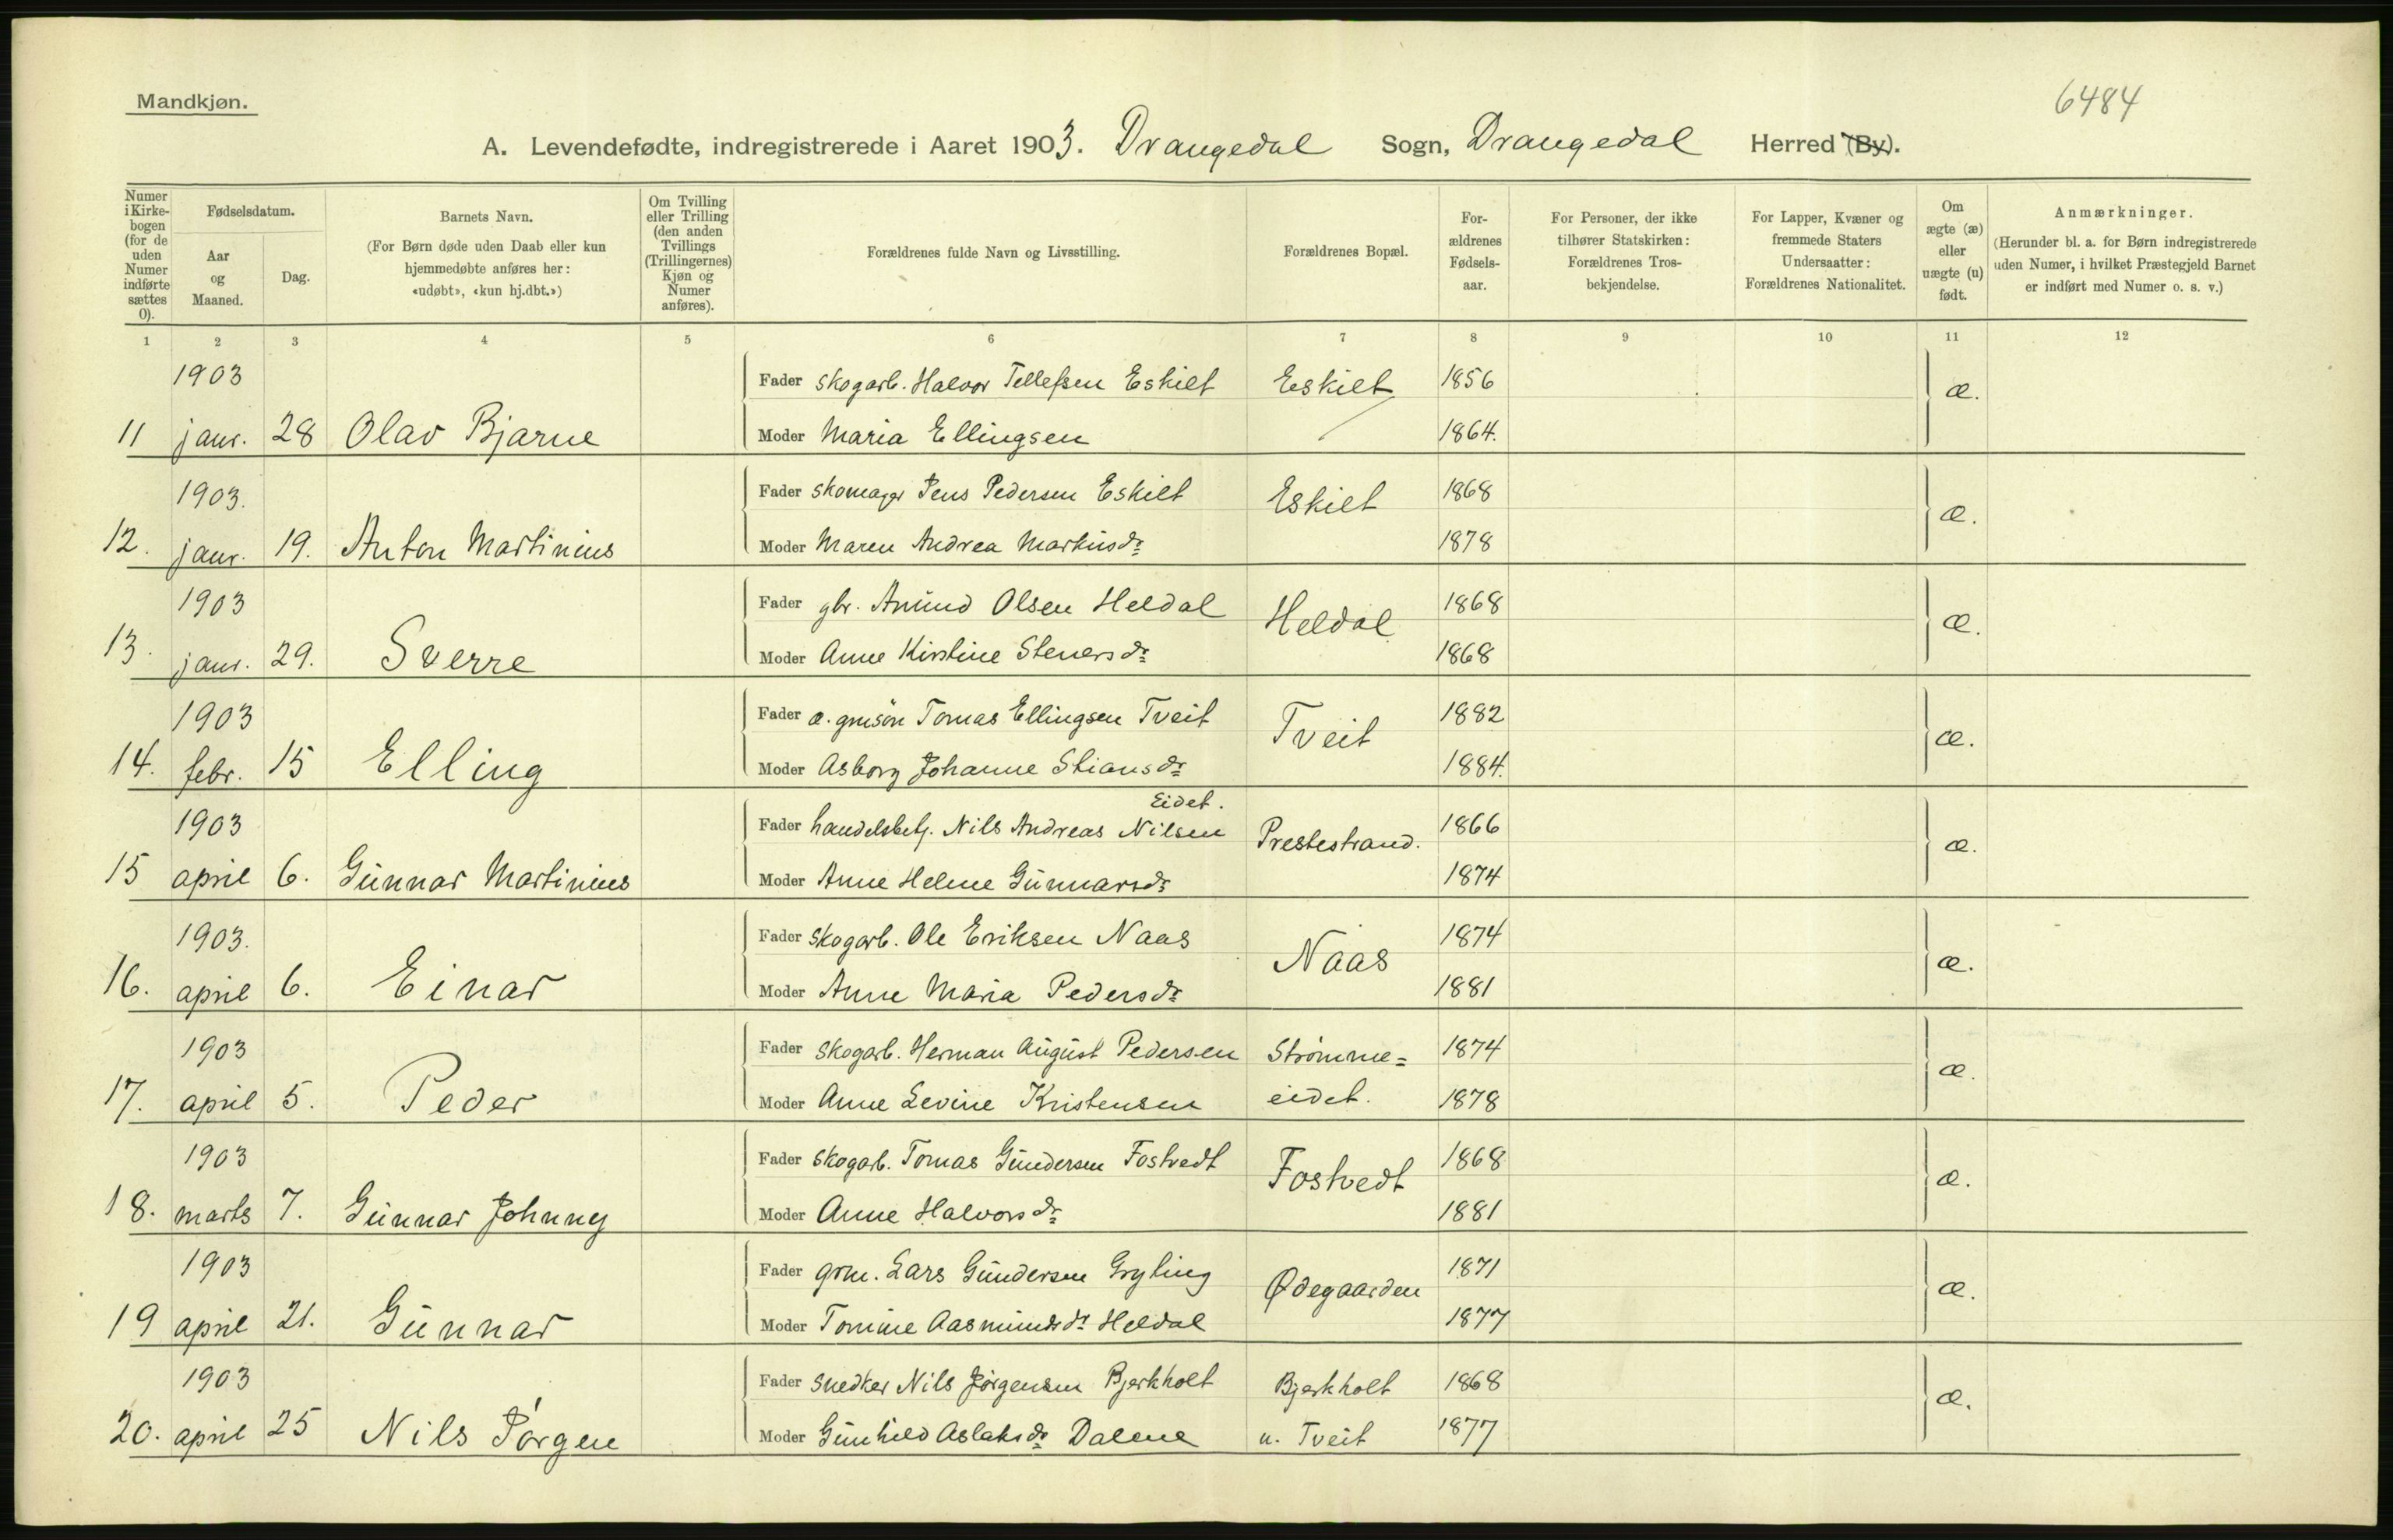 Mandkjøn.
6484
A. Levendefødte, indregistrerede i Aaret 1903. Drangedal Sogn, Drangedal Herred (By).
Numer i Kirke-bogen (for de uden Numer indførte sættes 0).
Fødselsdatum.
Aar og Maaned.
Dag.
Barnets Navn.
(For Børn døde uden Daab eller kun hjemmedøbte anføres her: «udøbt», «kun hj.dbt.»)
Om Tvilling eller Trilling (den anden Tvillings (Trillingernes) Kjøn og Numer anføres).
Forældrenes fulde Navn og Livsstilling.
Forældrenes Bopæl.
For-ældrenes Fødsels-aar.
For Personer, der ikke tilhører Statskirken: Forældrenes Tros-bekjendelse.
For Lapper, Kvæner og fremmede Staters Undersaatter: Forældrenes Nationalitet.
Om ægte (æ) eller uægte (u) født.
Anmærkninger.
(Herunder bl. a. for Børn indregistrerede uden Numer, i hvilket Præstegjeld Barnet er indført med Numer o. s. v.)
1 2 3 4 5 6 7 8 9 10 11 12
1903 Fader skogarb. Halvor Tellefsen Eskilt Eskilt 1856 æ.
11 janr. 28 Olav Bjarne Moder Maria Ellingsen 1864.
1903. Fader skomager Jens Pedersen Eskilt Eskilt 1868 æ.
12. janr. 19. Anton Martinius Moder Maren Andrea Markusdr 1878
1903 Fader gbr. Anund Olsen Heldal Heldal 1868 æ.
13. janr. 29. Sverre Moder Anne Kirstine Stenersdr 1868
1903 Fader æ. gmsøn Tomas Ellingsen Tveit Tveit 1882 æ.
14. febr. 15 Elling Moder Asborg Johanne Stiansdr 1884.
Eidet.
1903 Fader handelsbetj. Nils Andreas Nilsen Prestestrand. 1866 æ.
15 april 6. Gunnar Martinius Moder Anne Helene Gunnarsdr 1874
1903. Fader skogarb. Ole Eriksen Naas Naas 1874 æ.
16. april 6. Einar Moder Anne Maria Pedersdr 1881
1903 Fader skogarb. Herman August Pedersen Strømme= 1874 æ.
17. april 5. Peder Moder Anne Levine Kristensen eidet. 1878
1903 Fader skogarb. Tomas Gundersen Fostvedt Fostvedt 1868 æ.
18. marts 7. Gunnar Johnny Moder Anne Halvorsdr 1881
1903 Fader grm. Lars Gundersen Gryting Ødegaarden 1871 æ.
19 april 21. Gunnar Moder Tomine Aasmundsdr Heldal 1877
1903 Fader snedker Nils Jørgensen Bjerkholt Bjerkholt 1868 æ.
20. april 25 Nils Jørgen Moder Gunhild Aslaksdr Dalene u. Tveit 1877